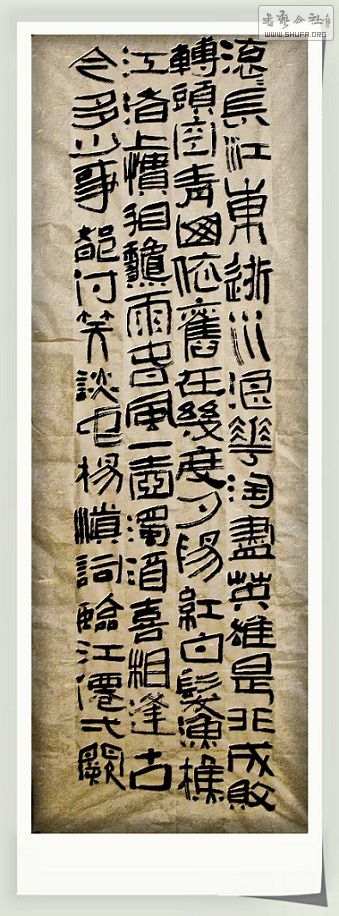 书艺公社
WWW.SHUFA.ORG
滾〻長江東逝水浪花淘盡英雄是非成敗
轉頭空青山依舊在幾度夕陽紅白髮漁樵
江渚上慣看龝月春風一壺濁酒喜相逢古
今多少事都付笑談中楊慎詞臨江僊弌闋